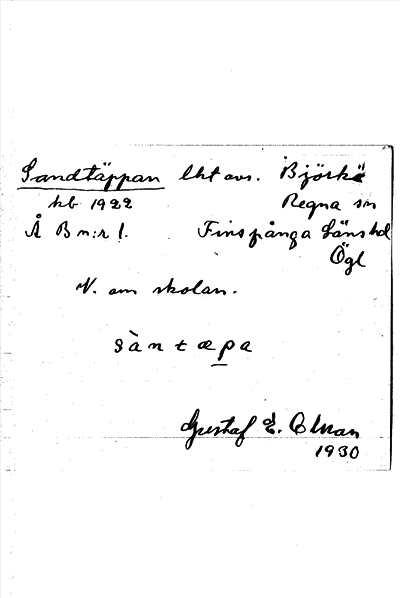 Sandtäppan lht avs. Björke
kb 1922 Regna sn
Å B n:r 1. Finspånga läns hd
Ögl
N. om skolan.
sàntæpa
Gustaf E.
1930